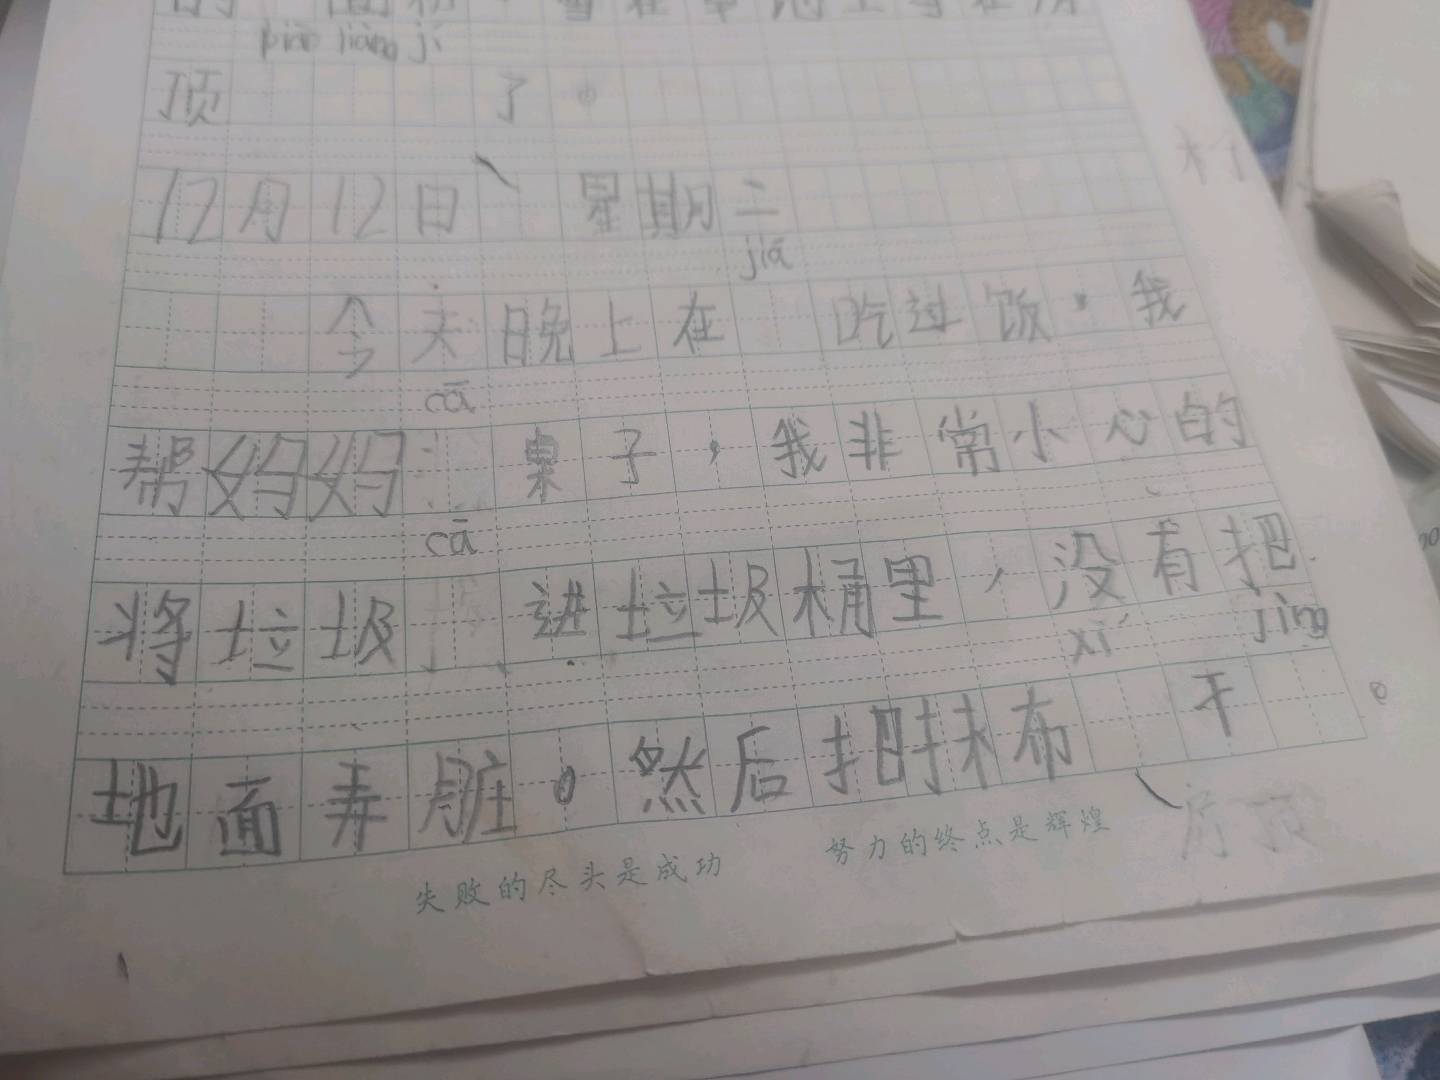 piào liàng jí
顶 了。
12月12日 星期二
jiā
今天晚上在 吃过饭，我
cā
帮妈妈 桌子，我非常小心的
cā
将垃圾 进垃圾桶里，没有把
xǐ jìng
地面弄脏。然后把抹布 干 。
失败的尽头是成功 努力的终点是辉煌